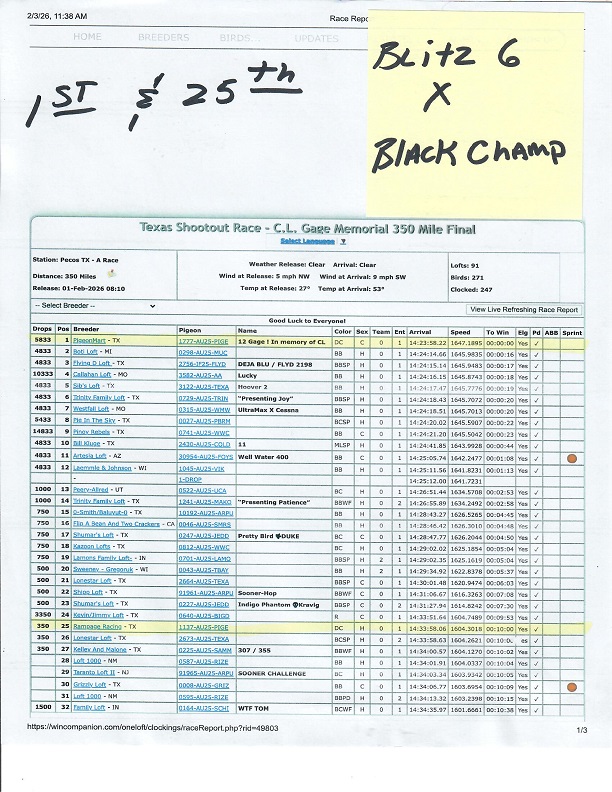 2/3/26, 11:38 AM Race Repo
HOME BREEDERS BIRDS... UPDATES
1ST & 25th
BLitz 6
X
BLACK CHAMP
Texas Shootout Race - C.L. Gage Memorial 350 Mile Final
Select Language ▼
Station: Pecos TX - A Race
Distance: 350 Miles
Release: 01-Feb-2026 08:10
Weather Release: Clear Arrival: Clear
Wind at Release: 5 mph NW Wind at Arrival: 9 mph SW
Temp at Release: 27° Temp at Arrival: 53°
Lofts: 91
Birds: 271
Clocked: 247
-- Select Breeder --
View Live Refreshing Race Report
Good Luck to Everyone!
Drops Pos Breeder Pigeon Name Color Sex Team Ent Arrival Speed To Win Elg Pd ABB Sprint
5833 1 PigeonMart - TX 1777-AU25-PIGE 12 Gage ! In memory of CL DC C 0 1 14:23:58.22 1647.1895 00:00:00 Yes ✓
4833 2 Boti Loft - MI 0298-AU25-MUC BB H 0 1 14:24:14.66 1645.9835 00:00:16 Yes ✓
4833 3 Flying D Loft - TX 2756-IF25-FLYD DEJA BLU / FLYD 2198 BBSP H 0 1 14:24:15.14 1645.9483 00:00:17 Yes ✓
10333 4 Callahan Loft - MO 3582-AU25-AA Lucky BB H 0 1 14:24:16.15 1645.8743 00:00:18 Yes ✓
4833 5 Sib's Loft - TX 3122-AU25-TEXA Hoover 2 BB H 0 1 14:24:17.47 1645.7776 00:00:19 Yes ✓
4833 6 Trinity Family Loft - TX 0729-AU25-TRIN "Presenting Joy" BBSP H 0 1 14:24:18.43 1645.7072 00:00:20 Yes ✓
4833 7 Westfall Loft - MO 0315-AU25-WMW UltraMax X Cessna BB H 0 1 14:24:18.51 1645.7013 00:00:20 Yes ✓
5433 8 Pie In The Sky - TX 0027-AU25-PBRM BCSP H 0 1 14:24:20.02 1645.5907 00:00:22 Yes ✓
14833 9 Pinoy Rebels - TX 0741-AU25-WWC BB C 0 1 14:24:21.20 1645.5042 00:00:23 Yes ✓
4833 10 Bill Kluge - TX 2430-AU25-COLD 11 MLSP H 0 1 14:24:41.85 1643.9928 00:00:44 Yes ✓
4833 11 Artesia Loft - AZ 30954-AU25-FOYS Well Water 400 BB C 0 1 14:25:05.74 1642.2477 00:01:08 Yes ✓
4833 12 Laemmle & Johnson - WI 1045-AU25-VIK BB H 0 1 14:25:11.56 1641.8231 00:01:13 Yes ✓
- 1-DROP 14:25:12.00 1641.7231
1000 13 Peery-Allred - UT 0522-AU25-UCA BC H 0 1 14:26:51.44 1634.5708 00:02:53 Yes ✓
1000 14 Trinity Family Loft - TX 1241-AU25-MAKO "Presenting Patience" BBWF H 0 2 14:26:55.89 1634.2492 00:02:58 Yes ✓
750 15 D-Smith/Baluyut-0 - TX 10192-AU25-ARPU BB H 0 1 14:28:43.27 1626.5265 00:04:45 Yes ✓
750 16 Flip A Bean And Two Crackers - CA 0046-AU25-SMRS BB H 0 1 14:28:46.42 1626.3010 00:04:48 Yes ✓
750 17 Shumar's Loft - TX 0247-AU25-JEDD Pretty Bird DUKE BC C 0 1 14:28:47.77 1626.2044 00:04:50 Yes ✓
750 18 Kazoon Lofts - TX 0812-AU25-WWC BC H 0 1 14:29:02.02 1625.1854 00:05:04 Yes ✓
750 19 Lamons Family Loft- - IN 0701-AU25-LAMO BBSP H 2 1 14:29:02.35 1625.1619 00:05:04 Yes ✓
500 20 Sweeney - Gregoruk - WI 0043-AU25-TBAY BB H 2 1 14:29:34.92 1622.8378 00:05:37 Yes ✓
500 21 Lonestar Loft - TX 2664-AU25-TEXA BBSP C 0 1 14:30:01.48 1620.9474 00:06:03 Yes ✓
500 22 Shipo Loft - TX 91961-AU25-ARPU Sooner-Hop BBWF C 0 1 14:31:06.67 1616.3263 00:07:08 Yes ✓
500 23 Shumar's Loft - TX 0227-AU25-JEDD Indigo Phantom Kravig BBSP C 0 2 14:31:27.94 1614.8242 00:07:30 Yes ✓
3350 24 Kevin/Jimmy Loft - TX 0640-AU25-BIGD R C 0 1 14:33:51.64 1604.7489 00:09:53 Yes ✓
350 25 Rampage Racing - TX 1137-AU25-PIGE DC H 0 1 14:33:58.06 1604.3018 00:10:00 Yes ✓
350 26 Lonestar Loft - TX 2673-AU25-TEXA BCSP H 0 2 14:33:58.63 1604.2621 00:10:0 es ✓
350 27 Kelley And Malone - TX 0225-AU25-SAMM 307 / 355 BBWF H 0 1 14:34:00.57 1604.1270 00:10:02 Yes ✓
28 Loft 1000 - NM 0587-AU25-RIZE BB H 0 1 14:34:01.91 1604.0337 00:10:04 Yes ✓
29 Taranto Loft II - NJ 91965-AU25-ARPU SOONER CHALLENGE BC H 0 1 14:34:03.34 1603.9342 00:10:05 Yes ✓
30 Grizzly Loft - TX 0808-AU25-GRIZ BB C 0 1 14:34:06.77 1603.6954 00:10:09 Yes ✓
31 Loft 1000 - NM 0595-AU25-RIZE BBPD H 0 2 14:34:13.32 1603.2398 00:10:15 Yes ✓
1500 32 Family Loft - IN 0164-AU25-SCHI WTF TOM BCWF H 0 1 14:34:35.97 1601.6661 00:10:38 Yes ✓
https://wincompanion.com/oneloft/clockings/raceReport.php?rid=49803 1/3